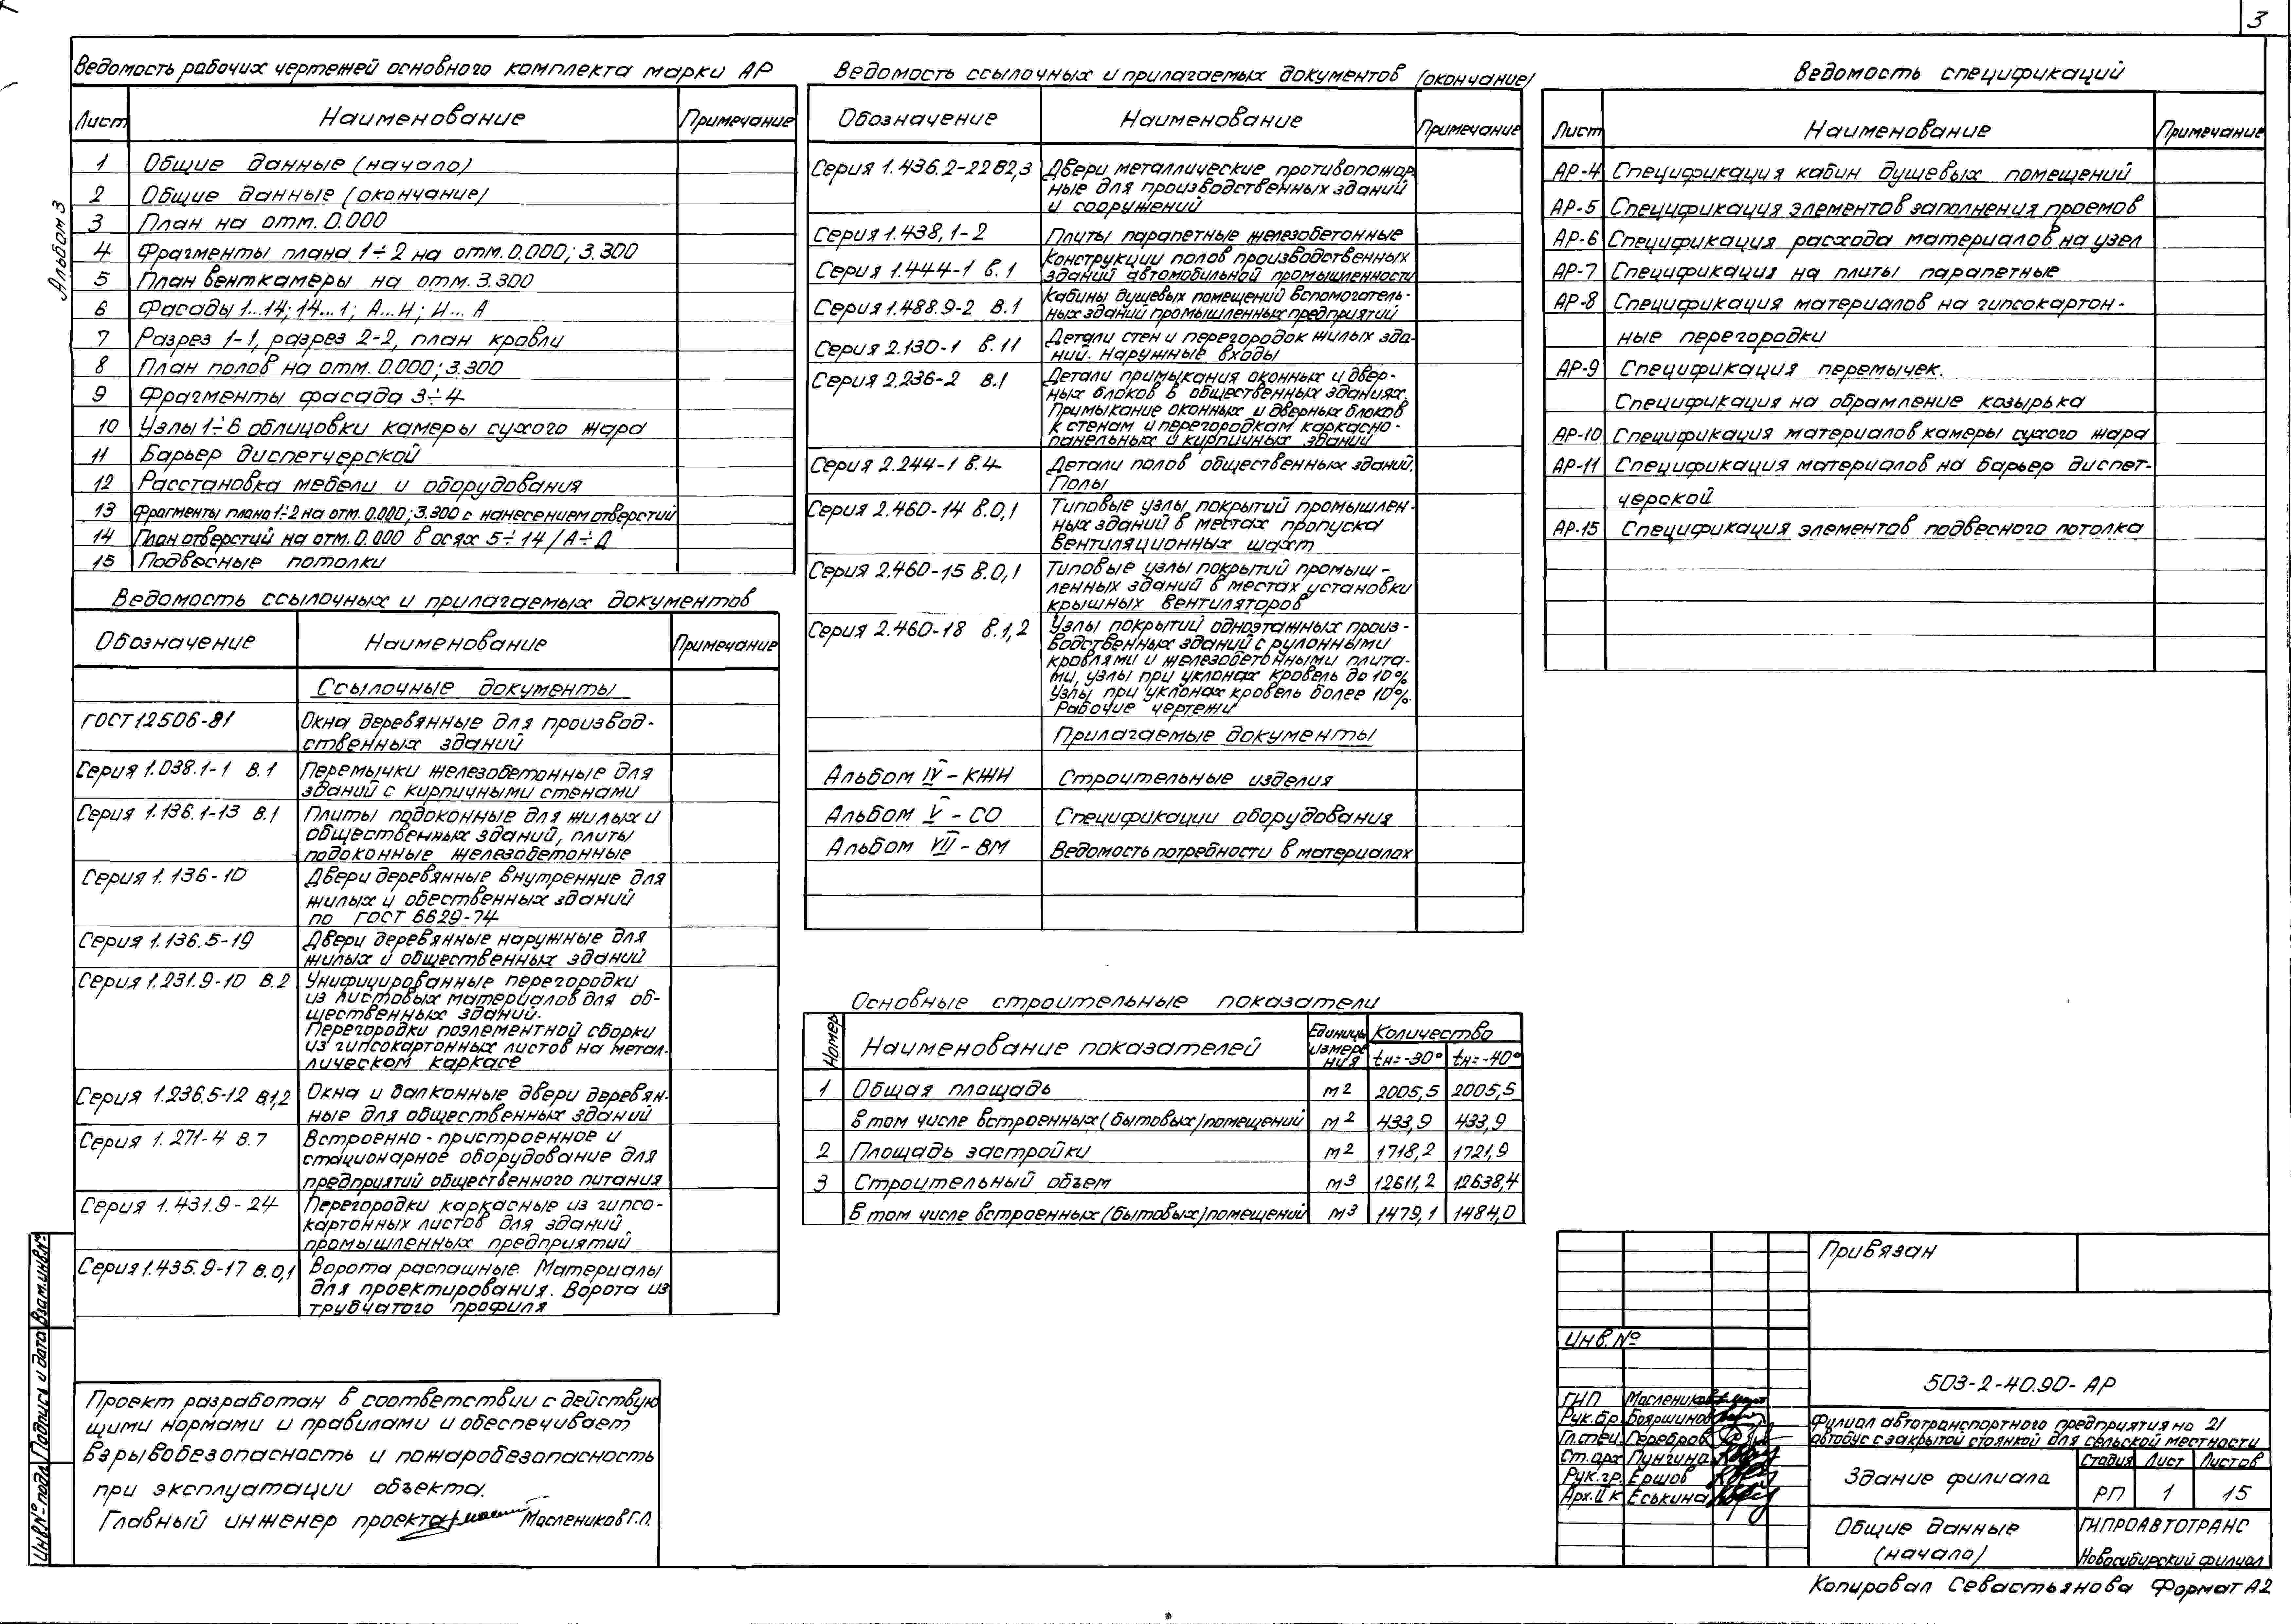 3
Альбом 3
Ведомость рабочих чертежей основного комплекта марки АР
Лист Наименование Примечание
1 Общие данные (начало)
2 Общие данные (окончание)
3 План на отм. 0.000
4 Фрагменты плана 1÷2 на отм. 0.000; 3.300
5 План венткамеры на отм. 3.300
6 Фасады 1...14; 14...1; А...И; И...А
7 Разрез 1-1, разрез 2-2, план кровли
8 План полов на отм. 0.000; 3.300
9 Фрагменты фасада 3÷4
10 Узлы 1÷6 облицовки камеры сухого жара
11 Барьер диспетчерской
12 Расстановка мебели и оборудования
13 Фрагменты плана 1÷2 на отм. 0.000; 3.300 с нанесением отверстий
14 План отверстий на отм. 0.000 в осях 5÷14/А÷Д
15 Подвесные потолки
Ведомость ссылочных и прилагаемых документов
Обозначение Наименование Примечание
Ссылочные документы
ГОСТ 12506-81 Окна деревянные для производ-
ственных зданий
Серия 1.038.1-1 в.1 Перемычки железобетонные для
зданий с кирпичными стенами
Серия 1.136.1-13 в.1 Плиты подоконные для жилых и
общественных зданий, плиты
подоконные железобетонные
Серия 1.136-10 Двери деревянные внутренние для
жилых и обественных зданий
по ГОСТ 6629-74
Серия 1.136.5-19 Двери деревянные наружные для
жилых и общественных зданий
Серия 1.231.9-10 в.2 Унифицированные перегородки
из листовых материалов для об-
щественных зданий.
Перегородки поэлементной сборки
из гипсокартонных листов на метал-
лическом каркасе
Серия 1.236.5-12 в.1,2 Окна и балконные двери деревян-
ные для общественных зданий
Серия 1.271-4 в.7 Встроенно-пристроенное и
стационарное оборудование для
предприятий общественного питания
Серия 1.431.9-24 Перегородки каркасные из гипсо-
картонных листов для зданий
промышленных предприятий
Серия 1.435.9-17 в.0,1 Ворота распашные. Материалы
для проектирования. Ворота из
трубчатого профиля
Проект разработан в соответствии с действую
щими нормами и правилами и обеспечивает
взрывобезопасность и пожаробезопасность
при эксплуатации объекта.
Главный инженер проекта Маслеников Г.Л.
Ведомость ссылочных и прилагаемых документов (окончание)
Обозначение Наименование Примечание
Серия 1.436.2-22 В2,3 Двери металлические противопожар
ные для производственных зданий
и сооружений
Серия 1.438,1-2 Плиты парапетные железобетонные
Серия 1.444-1 в.1 Конструкции полов производственных
зданий автомобильной промышленности
Серия 1.488.9-2 в.1 Кабины душевых помещений вспомогатель-
ных зданий промышленных предприятий
Серия 2.130-1 в.11 Детали стен и перегородок жилых зда-
ний. Наружные входы
Серия 2.236-2 в.1 Детали примыкания оконных и двер-
ных блоков в общественных зданиях.
Примыкание оконных и дверных блоков
к стенам и перегородкам каркасно-
панельных и кирпичных зданий
Серия 2.244-1 в.4 Детали полов общественных зданий.
Полы
Серия 2.460-14 в.0,1 Типовые узлы покрытий промышлен-
ных зданий в местах пропуска
вентиляционных шахт
Серия 2.460-15 в.0,1 Типовые узлы покрытий промыш-
ленных зданий в местах установки
крышных вентиляторов
Серия 2.460-18 в.1,2 Узлы покрытий одноэтажных произ-
водственных зданий с рулонными
кровлями и железобетонными плита-
ми, узлы при уклонах кровель до 10%
Узлы при уклонах кровель более 10%.
Рабочие чертежи
Прилагаемые документы
Альбом IV - КЖИ Строительные изделия
Альбом V - СО Спецификации оборудования
Альбом VII - ВМ Ведомость потребности в материалах
Основные строительные показатели
Номер Наименование показателей Единицы измере ния Количество
tн=-30° tн=-40°
1 Общая площадь м2 2005,5 2005,5
в том числе встроенных (бытовых) помещений м2 433,9 433,9
2 Площадь застройки м2 1718,2 1721,9
3 Строительный объем м3 12611,2 12638,4
в том числе встроенных (бытовых) помещений м3 1479,1 1484,0
Ведомость спецификаций
Лист Наименование Примечание
АР-4 Спецификация кабин душевых помещений
АР-5 Спецификация элементов заполнения проемов
АР-6 Спецификация расхода материалов на узел
АР-7 Спецификация на плиты парапетные
АР-8 Спецификация материалов на гипсокартон-
ные перегородки
АР-9 Спецификация перемычек.
Спецификация на обрамление козырька
АР-10 Спецификация материалов камеры сухого жара
АР-11 Спецификация материалов на барьер диспет-
черской
АР-15 Спецификация элементов подвесного потолка
Привязан
Инв. №
503-2-40.90-АР
ГИП Маслеников
Рук.бр. Бояршинов
Гл.спец. Серебров
Ст.арх Пунгина
Рук.гр. Ершов
Арх. II к Еськина
Филиал автотранспортного предприятия на 21
автобус с закрытой стоянкой для сельской местности
Здание филиала
Стадия Лист Листов
РП 1 15
Общие данные
(начало)
ГИПРОАВТОТРАНС
Новосибирский филиал
Инв.№ подл. Подпись и дата Взам.инв.№
Копировал Севастьянова Формат А2